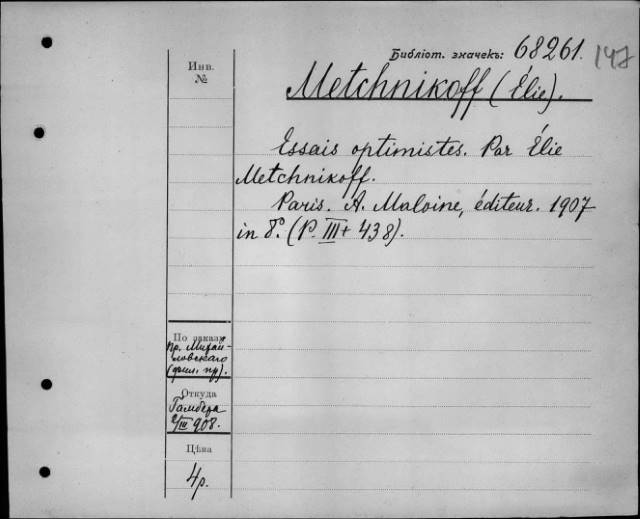 Библіот. значекъ: 68261. 147
Инв.
№
Metchnikoff (Élie).
Essais optimistes. Par Élie
Metchnikoff.
Paris. A. Maloine, éditeur. 1907
in 8º. (P. III + 438).
По заказу
пр. Михай-
ловскаго
(фил. пр).
Откуда
Гамбера
2/III 908.
Цѣна
4р.